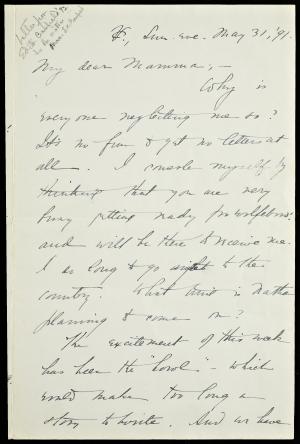 Letter from
Edith
to her
mother
V.C., Sun. eve. May 31, '91.
My dear Mamma; -
Why is
everyone neglecting me so?
It's no fun to get no letters at
all. I console myself by
thinking that you are very
busy getting ready for Wolfeboro.
and will be there to receive me.
I so long to go right to the
country. What time is
planning to come on?
The excitement of this week
has been the "howl" - which
would make too long a
story to write. And we have